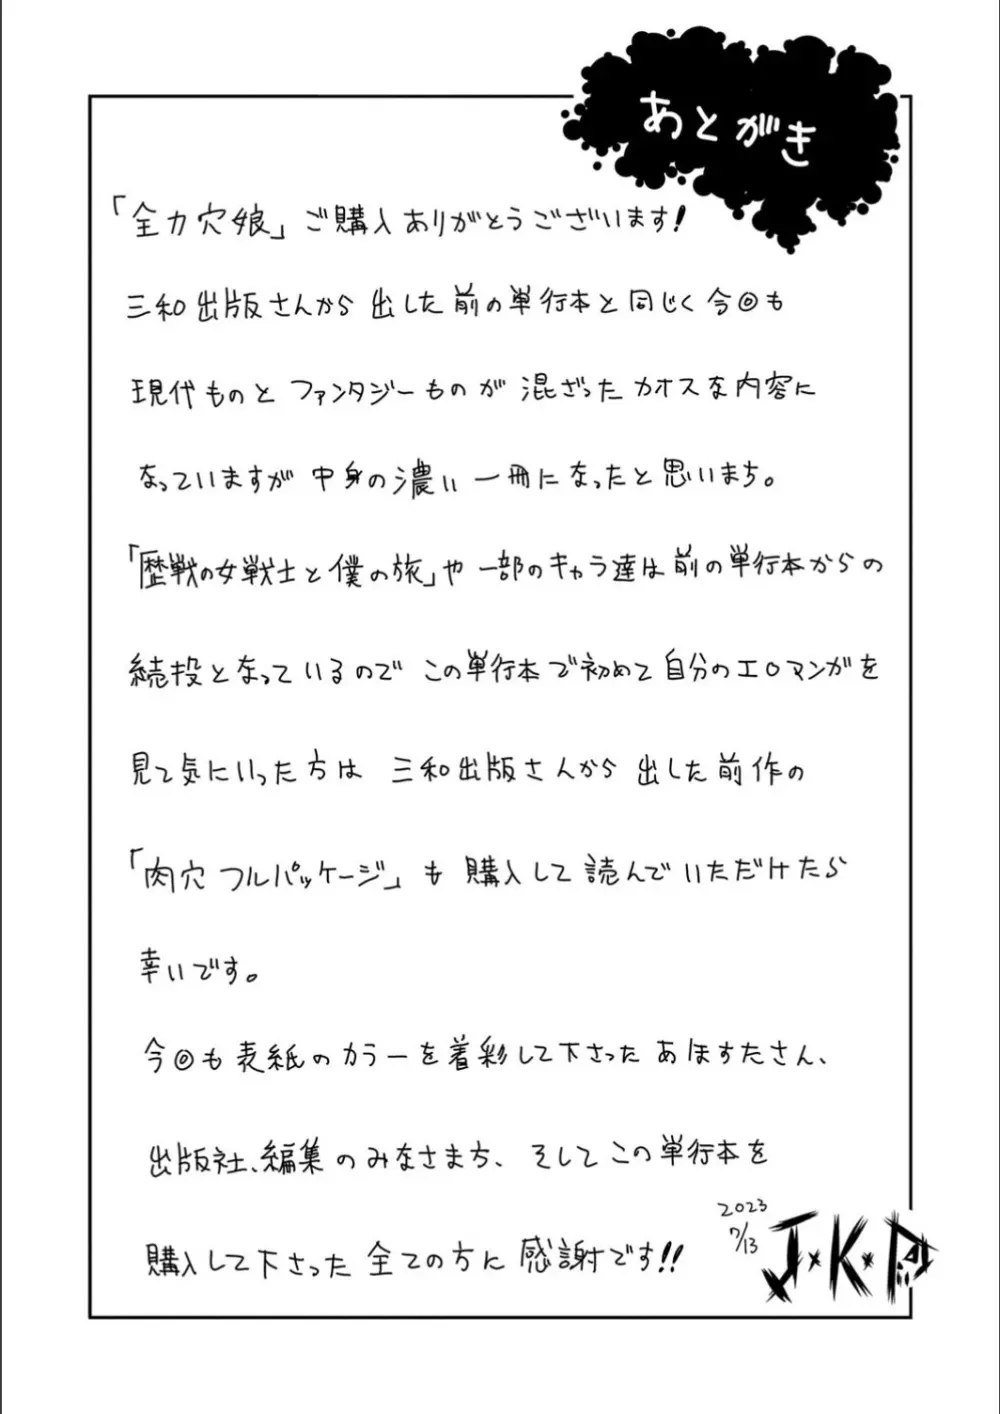 あとがき
「全力穴娘」ご購入ありがとうございます！
三和出版さんから出した前の単行本と同じく今回も
現代ものとファンタジーものが混ざったカオスな内容に
なっていますが中身の濃い一冊になったと思いまち。
「歴戦の女戦士と僕の旅」や一部のキャラ達は前の単行本からの
続投となっているのでこの単行本で初めて自分のエロマンガを
見て気にいった方は 三和出版さんから出した前作の
「肉穴フルパッケージ」も購入して読んでいただけたら
幸いです。
今回も表紙のカラーを着彩して下さったあほすたさん、
出版社、編集のみなさまち、そしてこの単行本を
購入して下さった全ての方に感謝です!!
2023
7/13
J★K★P